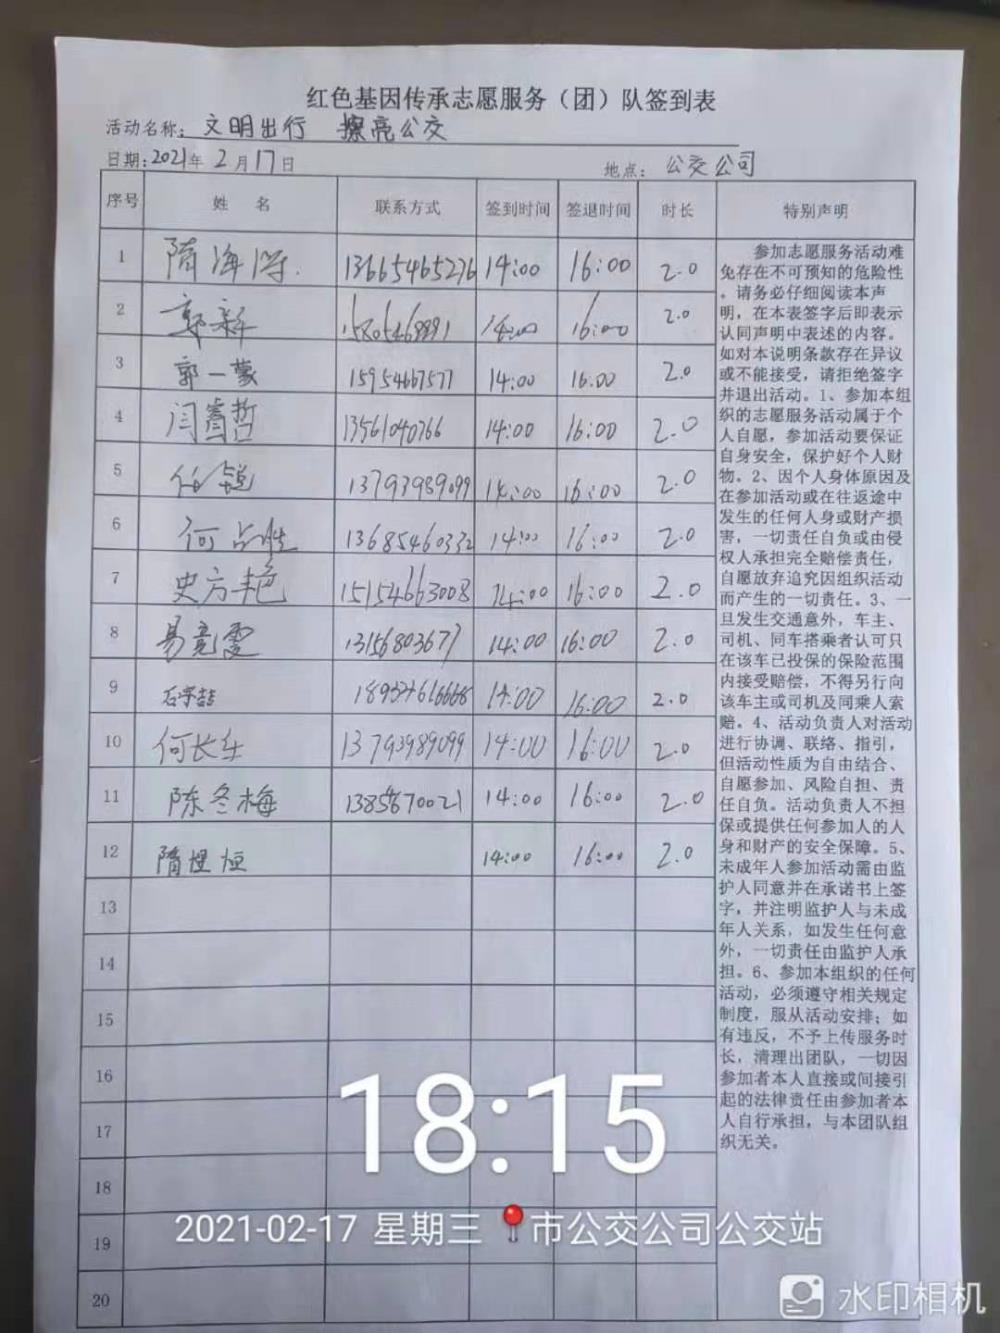 红色基因传承志愿服务（团）队签到表
活动名称：文明出行 擦亮公交
日期：2021年2月17日 地点：公交公司
序号 姓名 联系方式 签到时间 签退时间 时长 特别声明
1 隋海 13665465276 14:00 16:00 2.0
2 郭 14:00 16:00 2.0
3 郭一蒙 15954667577 14:00 16:00 2.0
4 闫睿哲 13561040766 14:00 16:00 2.0
5 任 13793989099 14:00 16:00 2.0
6 何 13685460332 14:00 16:00 2.0
7 史方艳 15154663008 14:00 16:00 2.0
8 易竟雯 13156803677 14:00 16:00 2.0
9 14:00 16:00 2.0
10 何长 13793989099 14:00 16:00 2.0
11 陈冬梅 14:00 16:00 2.0
12 隋 14:00 16:00 2.0
13
14
15
16
17
18
19
20
参加志愿服务活动难
免存在不可预知的危险性
。请务必仔细阅读本声
明，在本表签字后即表示
认同声明中表述的内容。
如对本说明条款存在异议
或不能接受，请拒绝签字
并退出活动。1、参加本组
织的志愿服务活动属于个
人自愿，参加活动要保证
自身安全，保护好个人财
物。2、因个人身体原因及
在参加活动或在往返途中
发生的任何人身或财产损
害，一切责任自负或由侵
权人承担完全赔偿责任，
自愿放弃追究因组织活动
而产生的一切责任。3、一
旦发生交通意外，车主、
司机、同车搭乘者认可只
在该车已投保的保险范围
内接受赔偿，不得另行向
该车主或司机及同乘人索
赔。4、活动负责人对活动
进行协调、联络、指引，
但活动性质为自由结合、
自愿参加、风险自担、责
任自负。活动负责人不担
保或提供任何参加人的人
身和财产的安全保障。5、
未成年人参加活动需由监
护人同意并在承诺书上签
字，并注明监护人与未成
年人关系，如发生任何意
外，一切责任由监护人承
担。6、参加本组织的任何
活动，必须遵守相关规定
制度，服从活动安排；如
有违反，不予上传服务时
长，清理出团队，一切因
参加者本人直接或间接引
起的法律责任由参加者本
人自行承担，与本团队组
织无关。
18:15
2021-02-17 星期三 市公交公司公交站
水印相机